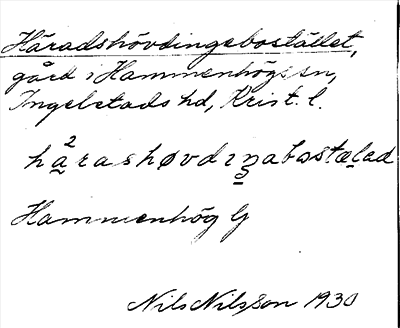 Häradshövdingebostället,
gård i Hammenhögs sn,
Ingelstads hd, Krist. l.
hạ²rashøvdıŋabostælad
Hammenhög G
Nils Nilsson 1930